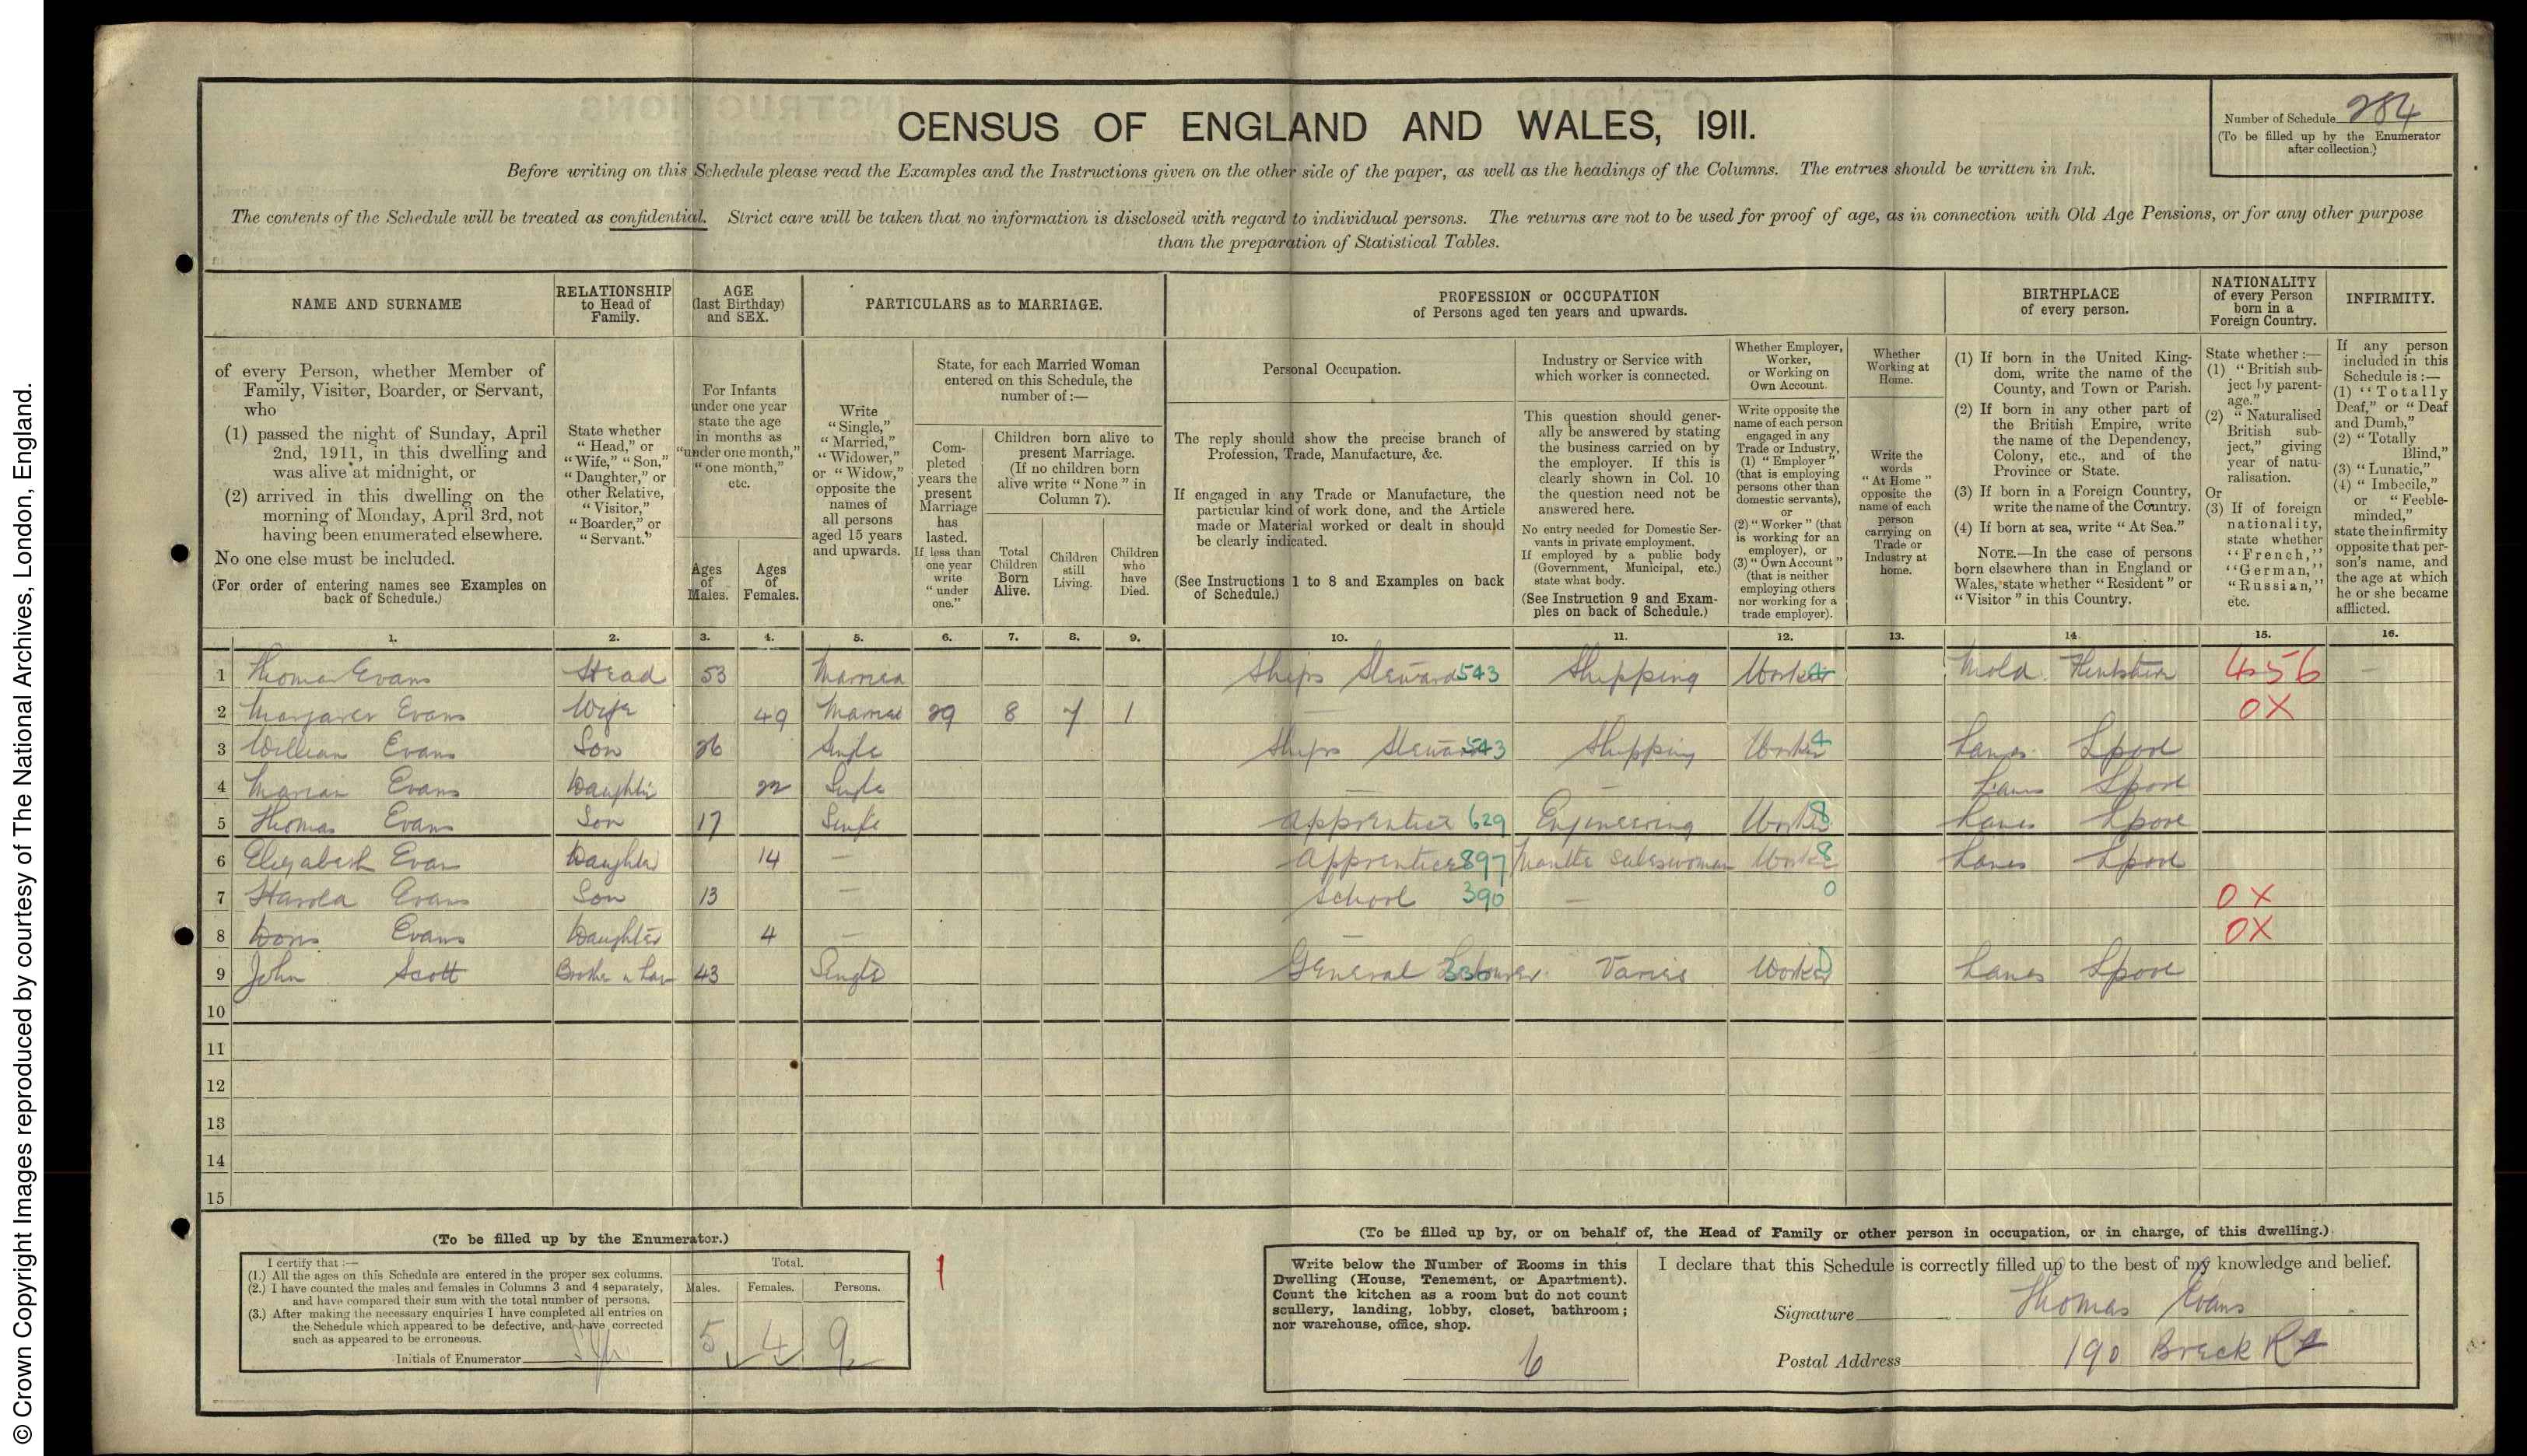 © Crown Copyright Images reproduced by courtesy of The National Archives, London, England.
CENSUS OF ENGLAND AND WALES, 1911.
Number of Schedule 284
(To be filled up by the Enumerator
after collection.)
Before writing on this Schedule please read the Examples and the Instructions given on the other side of the paper, as well as the headings of the Columns. The entries should be written in Ink.
The contents of the Schedule will be treated as confidential. Strict care will be taken that no information is disclosed with regard to individual persons. The returns are not to be used for proof of age, as in connection with Old Age Pensions, or for any other purpose
than the preparation of Statistical Tables.
NAME AND SURNAME
of every Person, whether Member of
Family, Visitor, Boarder, or Servant,
who
(1) passed the night of Sunday, April
2nd, 1911, in this dwelling and
was alive at midnight, or
(2) arrived in this dwelling on the
morning of Monday, April 3rd, not
having been enumerated elsewhere.
No one else must be included.
(For order of entering names see Examples on
back of Schedule.)
RELATIONSHIP
to Head of
Family.
State whether
"Head," or
"Wife," "Son,"
"Daughter," or
other Relative,
"Visitor,"
"Boarder," or
"Servant."
AGE
(last Birthday)
and SEX.
For Infants
under one year
state the age
in months as
"under one month,"
"one month,"
etc.
Ages
of
Males.
Ages
of
Females.
PARTICULARS as to MARRIAGE.
Write
"Single,"
"Married,"
"Widower,"
or "Widow,"
opposite the
names of
all persons
aged 15 years
and upwards.
State, for each Married Woman
entered on this Schedule, the
number of :—
Com-
pleted
years the
present
Marriage
has
lasted.
If less than
one year
write
"under
one."
Children born alive to
present Marriage.
(If no children born
alive write "None" in
Column 7).
Total
Children
Born
Alive.
Children
still
Living.
Children
who
have
Died.
PROFESSION or OCCUPATION
of Persons aged ten years and upwards.
Personal Occupation.
The reply should show the precise branch of
Profession, Trade, Manufacture, &c.
If engaged in any Trade or Manufacture, the
particular kind of work done, and the Article
made or Material worked or dealt in should
be clearly indicated.
(See Instructions 1 to 8 and Examples on back
of Schedule.)
Industry or Service with
which worker is connected.
This question should gener-
ally be answered by stating
the business carried on by
the employer. If this is
clearly shown in Col. 10
the question need not be
answered here.
No entry needed for Domestic Ser-
vants in private employment.
If employed by a public body
(Government, Municipal, etc.)
state what body.
(See Instruction 9 and Exam-
ples on back of Schedule.)
Whether Employer,
Worker,
or Working on
Own Account.
Write opposite the
name of each person
engaged in any
Trade or Industry,
(1) "Employer"
(that is employing
persons other than
domestic servants),
or
(2) "Worker" (that
is working for an
employer), or
(3) "Own Account"
(that is neither
employing others
nor working for a
trade employer).
Whether
Working at
Home.
Write the
words
"At Home"
opposite the
name of each
person
carrying on
Trade or
Industry at
home.
BIRTHPLACE
of every person.
(1) If born in the United King-
dom, write the name of the
County, and Town or Parish.
(2) If born in any other part of
the British Empire, write
the name of the Dependency,
Colony, etc., and of the
Province or State.
(3) If born in a Foreign Country,
write the name of the Country.
(4) If born at sea, write "At Sea."
NOTE.—In the case of persons
born elsewhere than in England or
Wales, state whether "Resident" or
"Visitor" in this Country.
NATIONALITY
of every Person
born in a
Foreign Country.
State whether :—
(1) "British sub-
ject by parent-
age."
(2) "Naturalised
British sub-
ject," giving
year of natu-
ralisation.
Or
(3) If of foreign
nationality,
state whether
"French,"
"German,"
"Russian,"
etc.
INFIRMITY.
If any person
included in this
Schedule is :—
(1) "Totally
Deaf," or "Deaf
and Dumb,"
(2) "Totally
Blind,"
(3) "Lunatic,"
(4) "Imbecile,"
or "Feeble-
minded,"
state the infirmity
opposite that per-
son's name, and
the age at which
he or she became
afflicted.
1. 2. 3. 4. 5. 6. 7. 8. 9. 10. 11. 12. 13. 14. 15. 16.
1 Thomas Evans Head 53 Married Ships Steward 543 Shipping Worker 4 Mold Flintshire 456 —
2 Margaret Evans Wife 49 Married 29 8 7 1 — OX
3 William Evans Son 26 Single Ships Steward 543 Shipping Worker 4 Lancs Lpool
4 Marian Evans Daughter 22 Single — Lancs Lpool
5 Thomas Evans Son 17 Single Apprentice 629 Engineering Worker 8 Lancs Lpool
6 Elizabeth Evans Daughter 14 — Apprentice 897 Mantle Saleswoman Worker 8 Lancs Lpool
7 Harold Evans Son 13 — School 390 — 0 OX
8 Doris Evans Daughter 4 — — OX
9 John Scott Brother in Law 43 Single General Labourer Varies Worker Lancs Lpool
10
11
12
13
14
15
(To be filled up by the Enumerator.)
I certify that :—
(1.) All the ages on this Schedule are entered in the proper sex columns.
(2.) I have counted the males and females in Columns 3 and 4 separately,
and have compared their sum with the total number of persons.
(3.) After making the necessary enquiries I have completed all entries on
the Schedule which appeared to be defective, and have corrected
such as appeared to be erroneous.
Initials of Enumerator
Total.
Males. Females. Persons.
5 4 9
1
(To be filled up by, or on behalf of, the Head of Family or other person in occupation, or in charge, of this dwelling.)
Write below the Number of Rooms in this
Dwelling (House, Tenement, or Apartment).
Count the kitchen as a room but do not count
scullery, landing, lobby, closet, bathroom;
nor warehouse, office, shop.
6
I declare that this Schedule is correctly filled up to the best of my knowledge and belief.
Signature Thomas Evans
Postal Address 190 Breck Rd